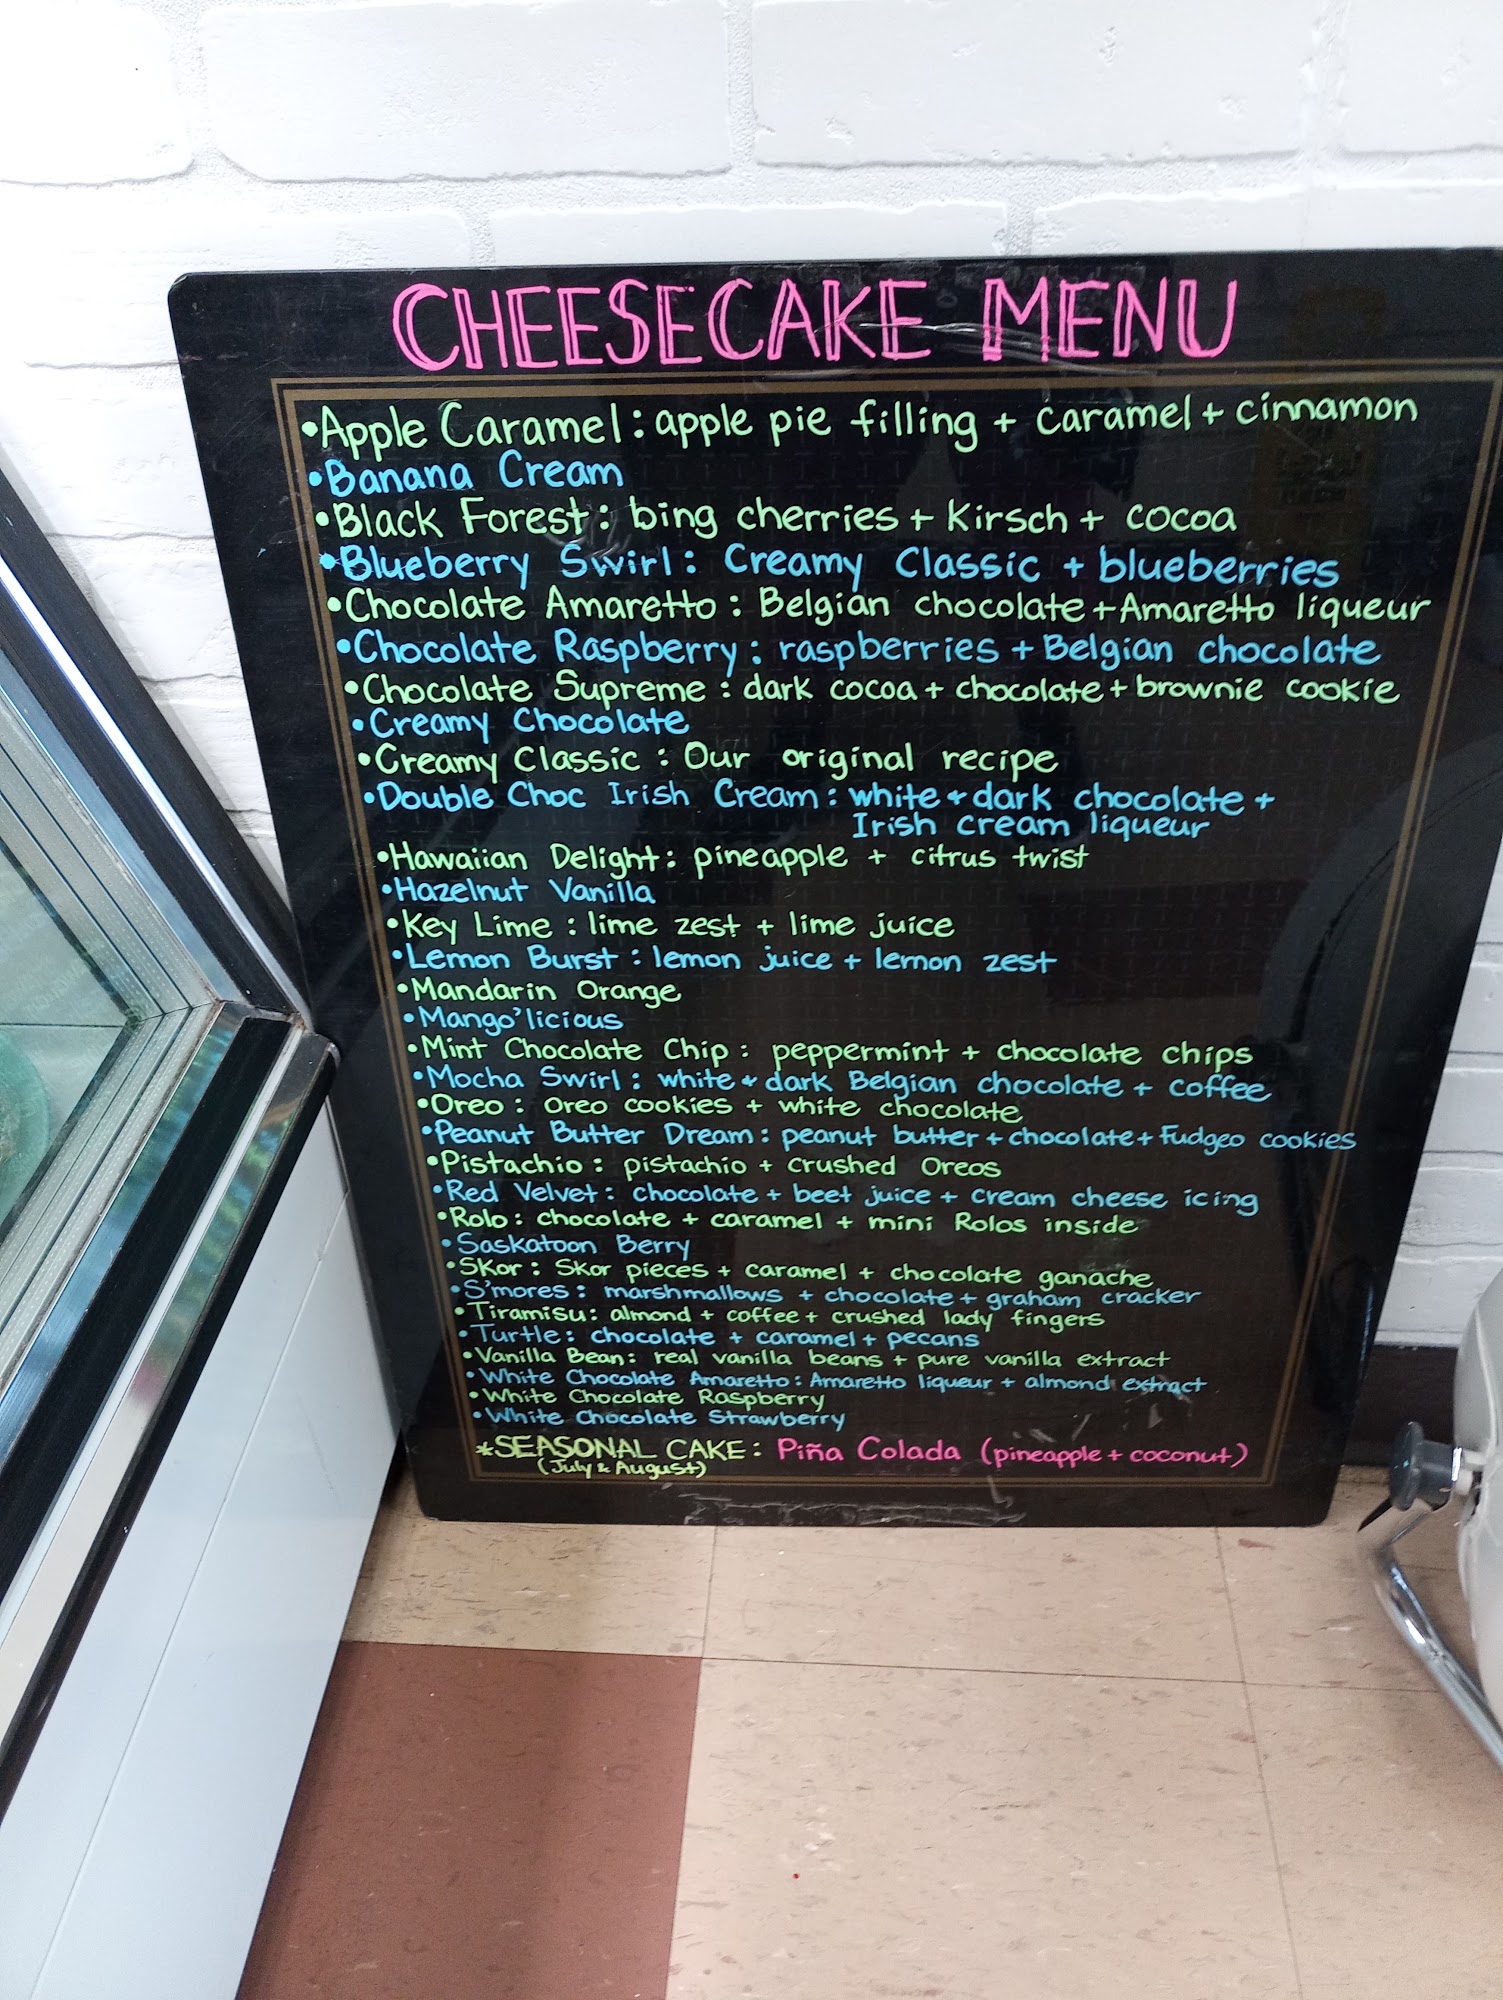 CHEESECAKE MENU
•Apple Caramel: apple pie filling + caramel + cinnamon
•Banana Cream
•Black Forest: bing cherries + Kirsch + cocoa
•Blueberry Swirl: Creamy Classic + blueberries
•Chocolate Amaretto: Belgian chocolate + Amaretto liqueur
•Chocolate Raspberry: raspberries + Belgian chocolate
•Chocolate Supreme: dark cocoa + chocolate + brownie cookie
•Creamy Chocolate
•Creamy Classic: Our original recipe
•Double Choc Irish Cream: white + dark chocolate +
Irish cream liqueur
•Hawaiian Delight: pineapple + citrus twist
•Hazelnut Vanilla
•Key Lime: lime zest + lime juice
•Lemon Burst: lemon juice + lemon zest
•Mandarin Orange
•Mango'licious
•Mint Chocolate Chip: peppermint + chocolate chips
•Mocha Swirl: white + dark Belgian chocolate + coffee
•Oreo: Oreo cookies + white chocolate
•Peanut Butter Dream: peanut butter + chocolate + Fudgeo cookies
•Pistachio: pistachio + crushed Oreos
•Red Velvet: chocolate + beet juice + cream cheese icing
•Rolo: chocolate + caramel + mini Rolos inside
•Saskatoon Berry
•Skor: Skor pieces + caramel + chocolate ganache
•S'mores: marshmallows + chocolate + graham cracker
•Tiramisu: almond + coffee + crushed lady fingers
•Turtle: chocolate + caramel + pecans
•Vanilla Bean: real vanilla beans + pure vanilla extract
•White Chocolate Amaretto: Amaretto liqueur + almond extract
•White Chocolate Raspberry
•White Chocolate Strawberry
*SEASONAL CAKE: Piña Colada (pineapple + coconut)
(July & August)